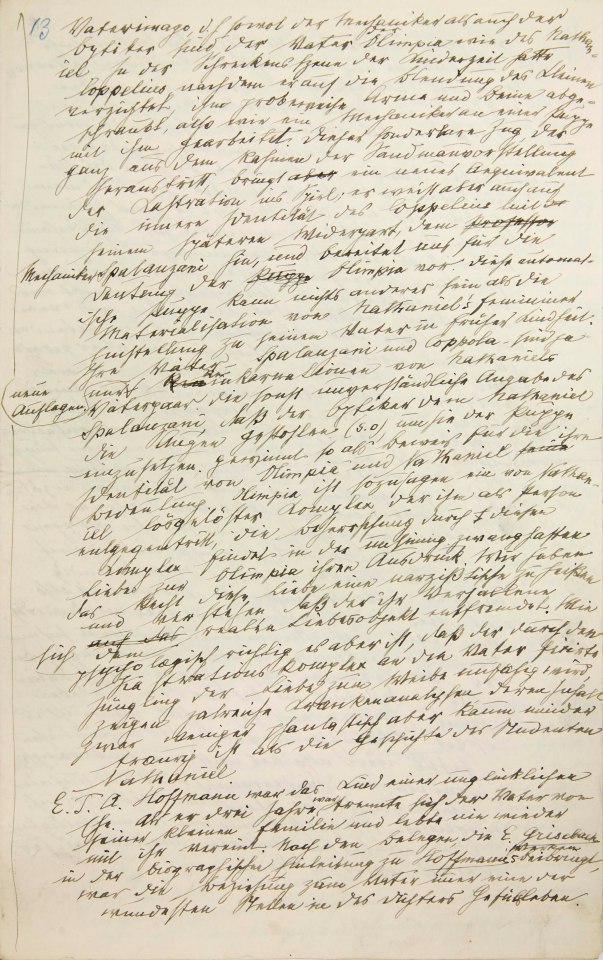 13
Vaterimago, d. h. sowol der Mechaniker als auch der
Optiker sind der Vater der Olimpia wie des Nathan-
iel. In der Schreckensszene der Kinderzeit hatte
Coppelius, nachdem er auf die Blendung des Kleinen
verzichtet, ihm probeweise Arme und Beine abge-
schraubt, also wie ein Mechaniker an einer Puppe
mit ihm gearbeitet. Dieser sonderbare Zug, der
ganz aus dem Rahmen der Sandmannvorstellung
heraustritt, bringt aber ein neues Aequivalent
der Kastration ins Spiel; er weist aber auch auf
die innere Identität des Coppelius mit
seinem späteren Widerpart, dem Professor
Mechaniker Spalanzani hin, und bereitet uns für die
Deutung der Puppe Olimpia vor. Diese automat-
ische Puppe kann nichts anderes sein als die
Materialisation von Nathaniel's femininer
Einstellung zu seinem Vater in früher Kindheit.
Ihre Väter Spalanzani und Coppola sind ja
nur neue Auflagen, Reinkarnationen von Nathaniels
Vaterpaar die sonst unverständliche Angabe des
Spalanzani, daß der Optiker dem Nathaniel
die Augen gestohlen (s. o) um sie der Puppe
einzusetzen, gewinnt so als Beweis für die ihre
Identität von Olimpia und Nathaniel
Bedeutung. Olimpia ist sozusagen ein von Nathan-
iel losgelöster Komplex, der ihm als Person
entgegentritt, die Beherrschung durch diesen
Komplex findet in der unsinnig zwanghaften
Liebe zur Olimpia ihren Ausdruck. Wir haben
das Recht diese Liebe eine narzißtische zu heißen
und verstehen, daß der ihr Verfallene
sich dem realen Liebesobjekt entfremdet. Wie
psychologisch richtig es aber ist, daß der durch den
Kastrationskomplex an den Vater fixirte
Jüngling der Liebe zum Weibe unfähig wird,
zeigen zalreiche Krankenanalysen deren Inhalt
zwar weniger phantastisch aber kaum minder
traurig ist als die Geschichte des Studenten
Nathaniel.
E. T. A. Hoffmann war das Kind einer unglücklichen
Ehe. Als er drei Jahre war, trennte sich der Vater von
seiner kleinen Familie und lebte nie wieder
mit ihr vereint. Nach den Belegen, die E. Grisebach
in der biographischen Einleitung zu Hoffmanns Werken beibringt,
war die Beziehung zum Vater immer eine der
wundesten Stellen in des Dichters Gefühlsleben.